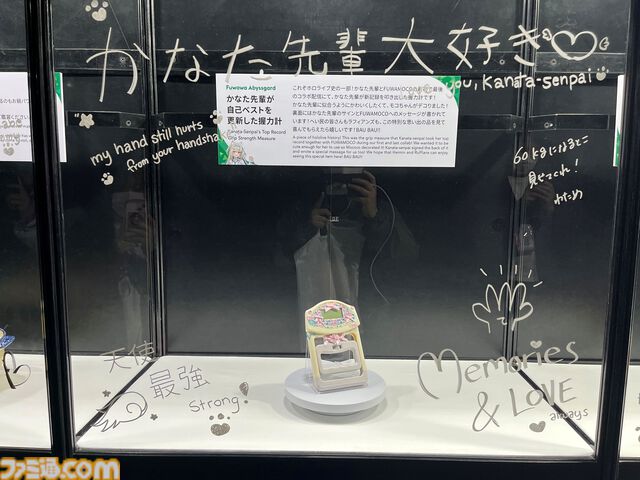 かなた先輩大好き♡
you, Kanata-senpai!
Fuwawa Abyssgard
かなた先輩が
自己ベストを
更新した握力計
Kanata-Senpai's Top Record
Grip Strength Measure
これぞホロライブ史の一部！かなた先輩とFUWAMOCOの
のコラボ配信にて、かなた先輩が新記録を叩き出した握力計です！
かなた先輩に似合うようにかわいくしたくて、モコちゃんがデコりました！
裏面にはかなた先輩のサインとFUWAMOCOへのメッセージが書かれて
います！へい民の皆さんもラフィアンズも、この特別な思い出の品を見て
喜んでもらえたら嬉しいです！BAU BAU!!
A piece of hololive history! This was the grip measure that Kanata-senpai took her top
record together with FUWAMOCO during our first and last collab! We wanted it to be
cute enough for her to use so Mococo decorated it! Kanata-senpai signed the back of it
and wrote a special message for us too! We hope that Heimin and Ruffians can enjoy
seeing this special item here! BAU BAU!!
my hand still hurts
from your handshake
60kgになるとこ
見せてくれ！
わため
天使
最強
strong!
Memories
& LOVE
always
ファミ通.com